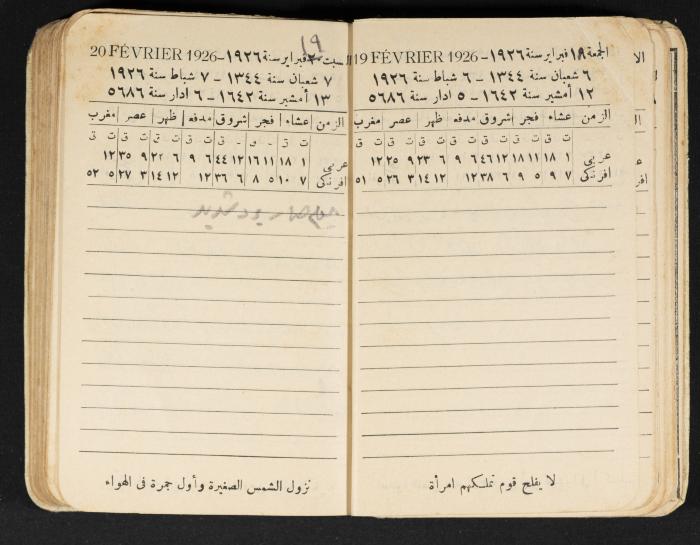 الجمعة ١٩ فبراير سنة ١٩٢٦ – 19 FÉVRIER 1926
٦ شعبان سنة ١٣٤٤ – ٦ شباط سنة ١٩٢٦
١٢ أمشير سنة ١٦٤٢ – ٥ ادار سنة ٥٦٨٦
الزمن | عشاء | فجر | شروق | مدفه | ظهر | عصر | مغرب
ت ق ت ق ت ق ت ق ت ق ت ق ت ق
عربى ١ ١٨ ١١ ١٨ ١٢ ٤٦ ٦ ٩ ٦ ٢٣ ٩ ٢٥ ١٢
افرنكى ٧ ٩ ٥ ٩ ٦ ٣٨ ١٢ ١٢ ١٤ ٣ ٢٦ ٥ ٥١
لا يفلح قوم تملكهم امرأة
السبت ٢٠ فبراير سنة ١٩٢٦ – 20 FÉVRIER 1926
١٩
٧ شعبان سنة ١٣٤٤ – ٧ شباط سنة ١٩٢٦
١٣ أمشير سنة ١٦٤٢ – ٦ ادار سنة ٥٦٨٦
الزمن | عشاء | فجر | شروق | مدفه | ظهر | عصر | مغرب
١ ١٨ ١١ ١٦ ١٢ ٤٤ ٦ ٩ ٦ ٢٢ ٩ ٣٥ ١٢
٧ ١٠ ٥ ٨ ٦ ٣٦ ١٢ ١٢ ١٤ ٣ ٢٧ ٥ ٥٢
نزول الشمس الصغيرة وأول جمرة فى الهواء